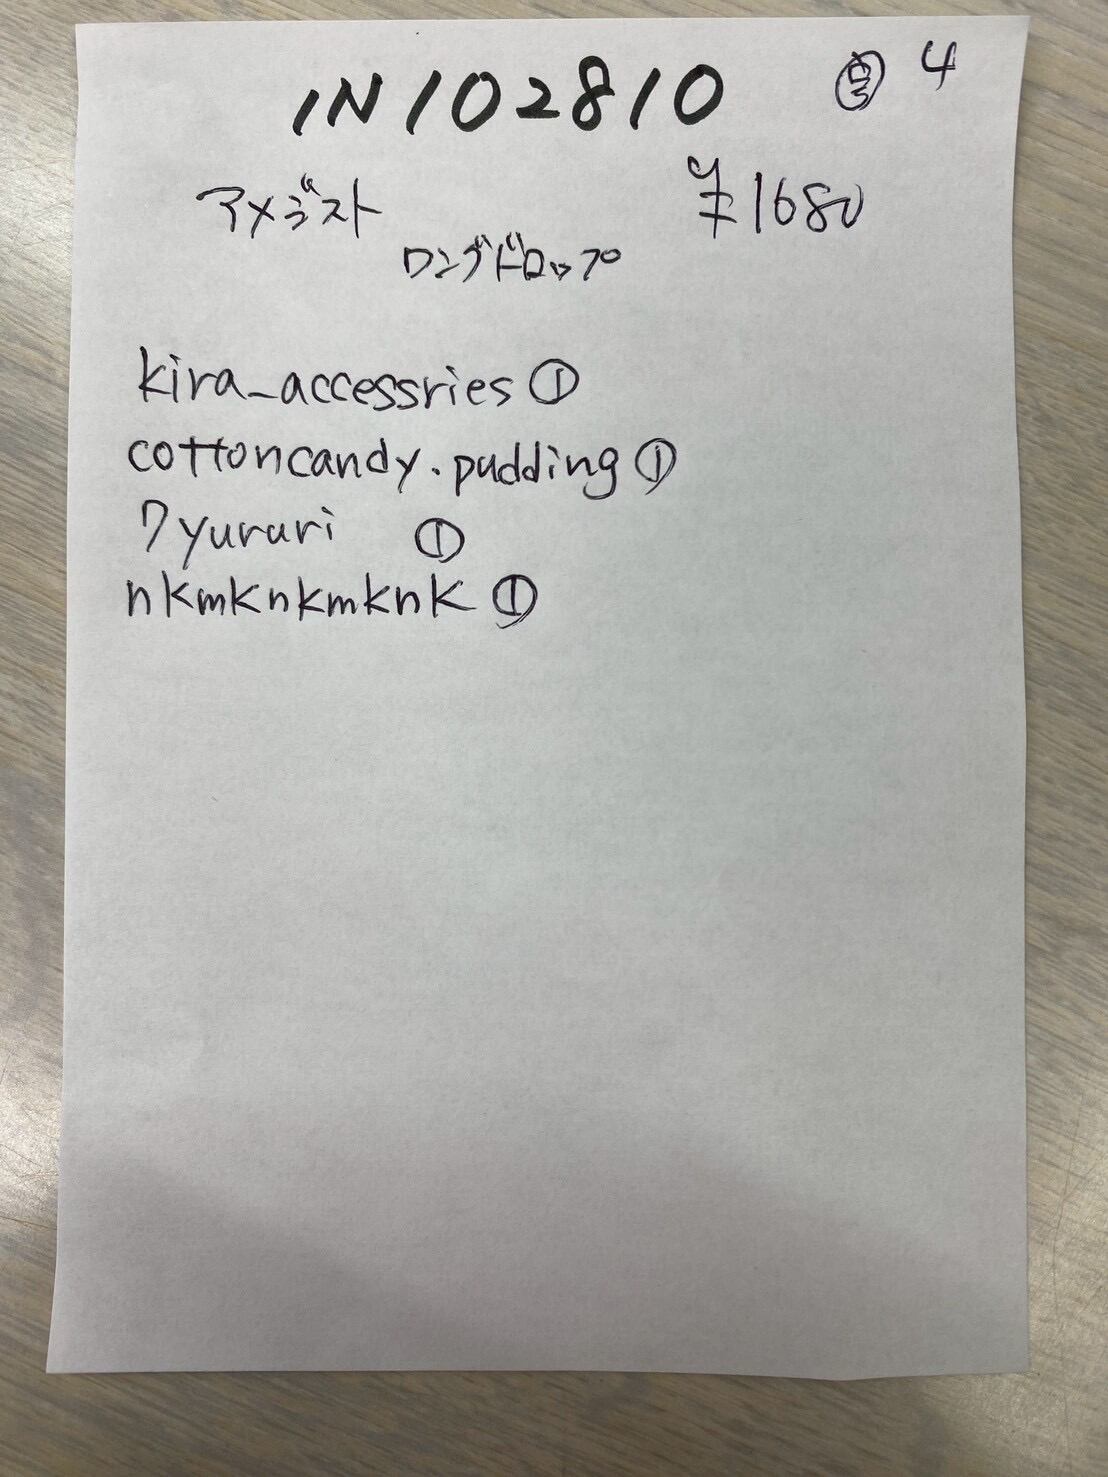 IN102810
4
アメジスト ¥1680
ロングドロップ
kira_accessries ①
cottoncandy.pudding ①
7yururi ①
nkmknkmknk ①